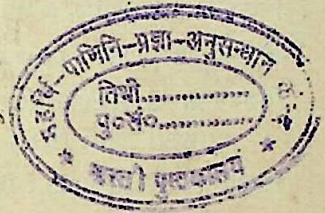 महर्षि-पाणिनि-प्रज्ञा-अनुसन्धान
तिथी....................
पु०सं०....................
* पुस्तकालय *